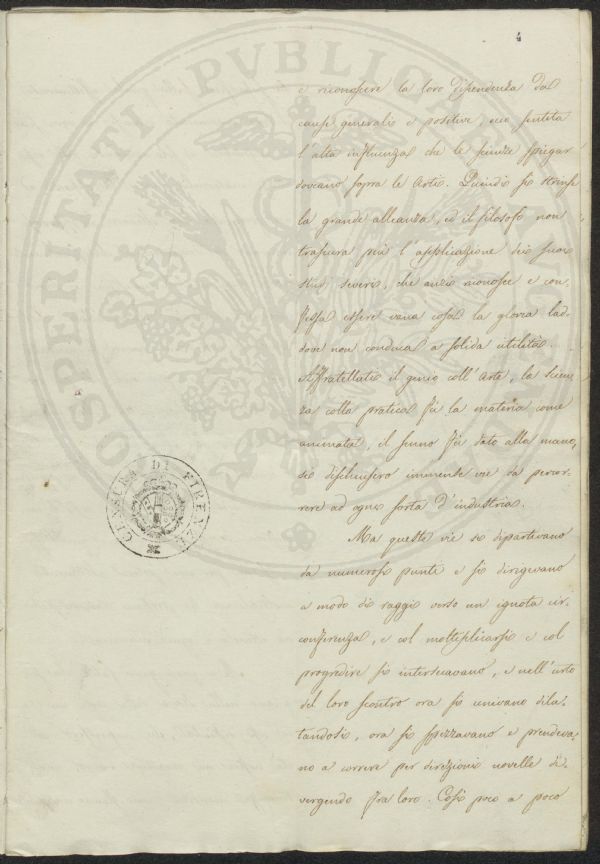 4
e riconoscere la loro dipendenza da
cause generali e positive, ecco sentita
l'alta influenza che le scienze spiegar
dovean sopra le Arti. Quindi si strinse
la grande alleanza, ed il filosofo non
trascura più l'applicazione dei suoi
studi severi, che anzi riconosce e con-
fessa essere vana cosa la gloria lad-
dove non conduca a solida utilità.
Affratellati il genio coll'Arte, la scien-
za colla pratica fu la materia come
animata, il senno fu dato alla mano,
si dischiusero immense vie da percor-
rere ad ogni sorta d'industria.
Ma queste vie si dipartivano
da numerosi punti e si dirigevano
a modo di raggi verso un ignota cir-
conferenza, e col moltiplicarsi e col
progredire si intersecavano, e nell'urto
del loro scontro ora si univano dila-
tandosi, ora si spezzavano e prendeva-
no a correre per direzioni novelle di-
vergendo fra loro. Così poco a poco
CENSURA DI FIRENZE
PROSPERITATI PUBLICAE